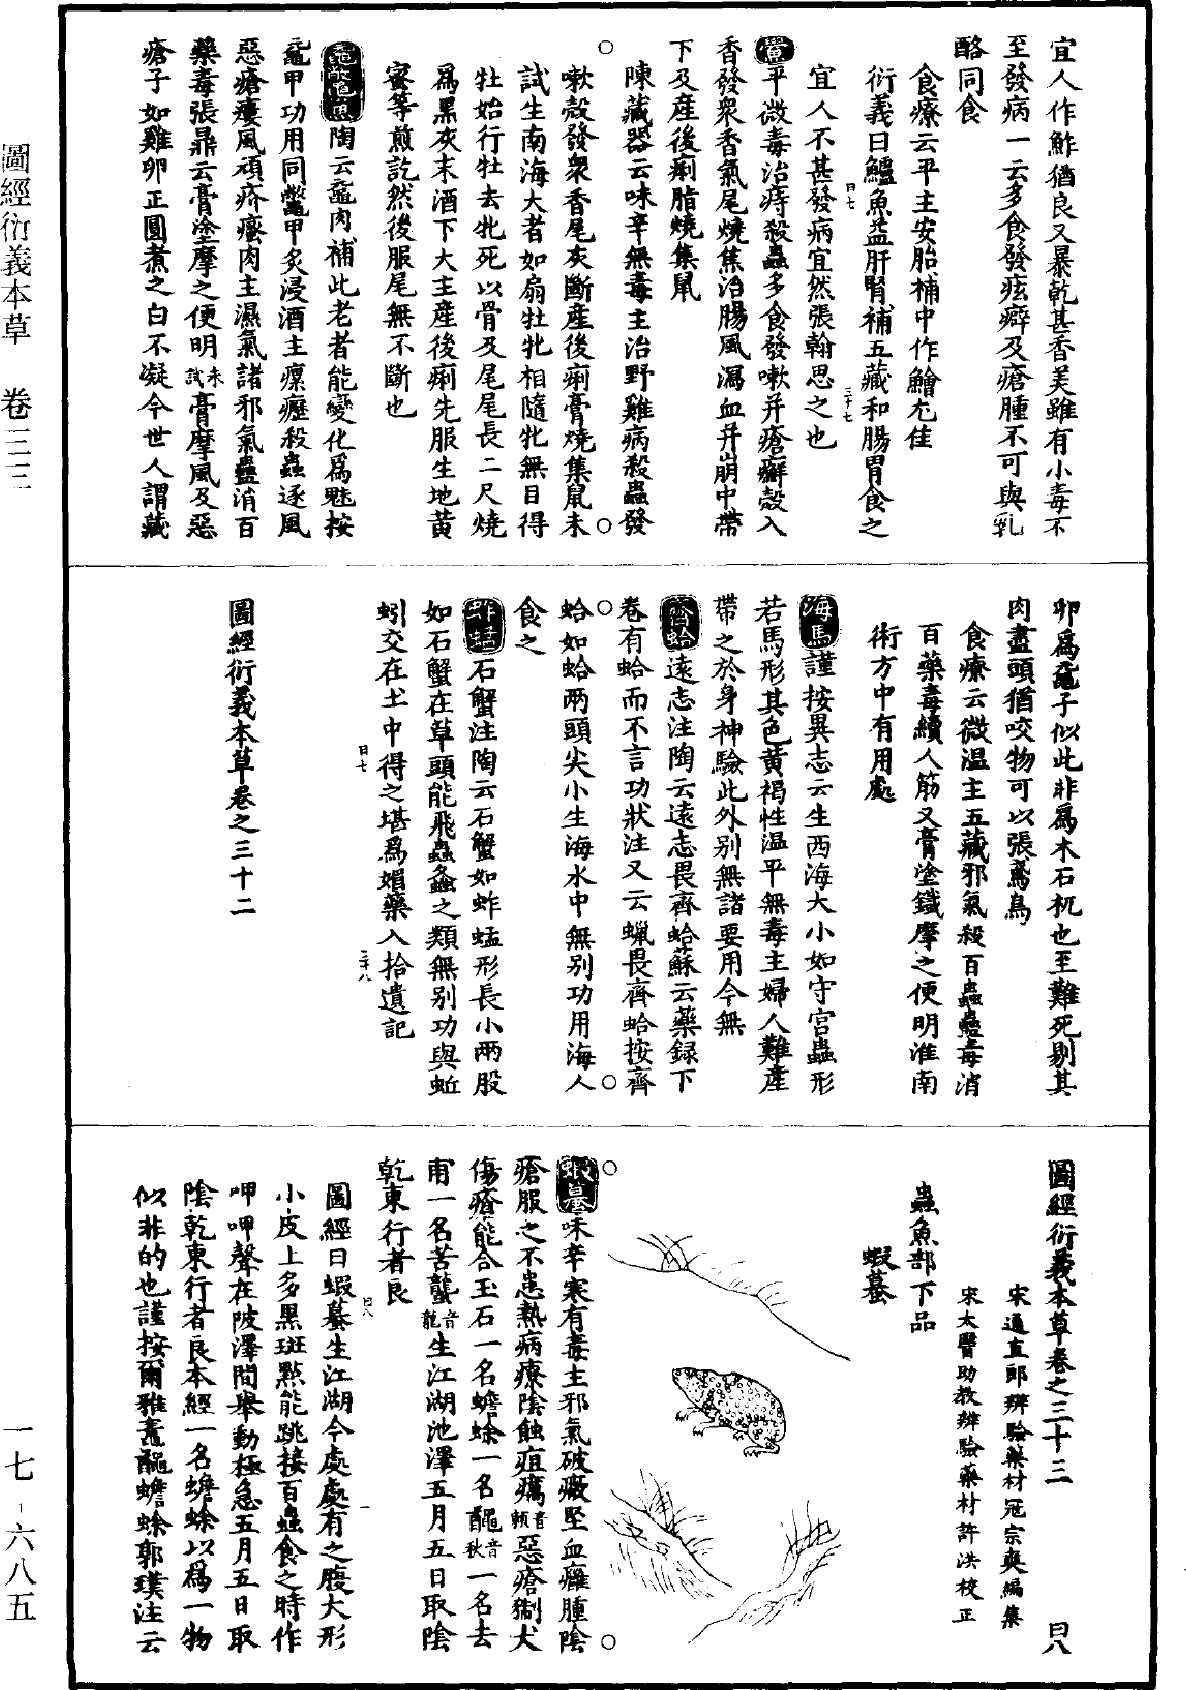 宜人作鮓猶良又暴乾甚香美雖有小毒不
至發病一云多食發痃癖及瘡腫不可與乳
酪同食
食療云平主安胎補中作鱠尤佳
衍義曰鱸魚益肝腎補五藏和腸胃食之
曰七
三十七
宜人不甚發病宜然張翰思之也
鱟平微毒治痔殺蟲多食發嗽并瘡癬殼入
香發衆香氣尾燒焦治腸風瀉血并崩中帶
下及産後痢脂燒集鼠
陳藏器云味辛無毒主治野雞病殺蟲發
嗽殼發衆香尾灰斷産後痢膏燒集鼠未
試生南海大者如扇牡牝相隨牝無目得
牡始行牡去牝死以骨及尾尾長二尺燒
爲黑灰末酒下大主産後痢先服生地黄
蜜等煎訖然後服尾無不斷也
陶云鼉肉補此老者能變化爲魅按
鼉甲功用同鼈甲炙浸酒主瘰癧殺蟲逐風
惡瘡瘻風頑疥瘙肉主濕氣諸邪氣蠱消百
藥毒張鼎云膏塗摩之便明未試膏摩風及惡
瘡子如雞卵正圓煮之白不凝今世人謂藏
卵爲黿子似此非爲木石机也至難死剔其
肉盡頭猶咬物可以張鳶鳥
食療云微温主五藏邪氣殺百蟲蠱毒消
百藥毒續人筋又膏塗鐵摩之便明淮南
術方中有用處
海馬謹按異志云生西海大小如守宫蟲形
若馬形其色黄褐性温平無毒主婦人難産
帶之於身神驗此外别無諸要用今無
齊蛤遠志注陶云遠志畏齊蛤蘇云藥録下
卷有蛤而不言功狀注又云蠟畏齊蛤按齊
蛤如蛤兩頭尖小生海水中無别功用海人
食之
蚱蜢石蟹注陶云石蟹如蚱蜢形長小兩股
如石蟹在草頭能飛蟲螽之類無别功與蚯
蚓交在土中得之堪爲媚藥入拾遺記
曰七
三十八
圖經衍義本草卷之三十二
圖經衍義本草卷之三十三
曰八
宋通直郎辨驗藥材寇宗奭編集
宋太醫助教辨驗藥材許洪校正
蟲魚部下品
蝦蟇
蝦蟇味辛寒有毒主邪氣破癥堅血癰腫陰
瘡服之不患熱病療陰蝕疽癘音賴惡瘡猘犬
傷瘡能合玉石一名蟾蜍一名䵷音秋一名去
甫一名苦蠪音龍生江湖池澤五月五日取陰
乾東行者良
曰八
一
圖經曰蝦蟇生江湖今處處有之腹大形
小皮上多黑斑點能跳接百蟲食之時作
呷呷聲在陂澤間舉動極急五月五日取
陰乾東行者良本經一名蟾蜍以爲一物
似非的也謹按爾雅鼃䵷蟾蜍郭璞注云
圖經衍義本草 卷三三
一七-六八五